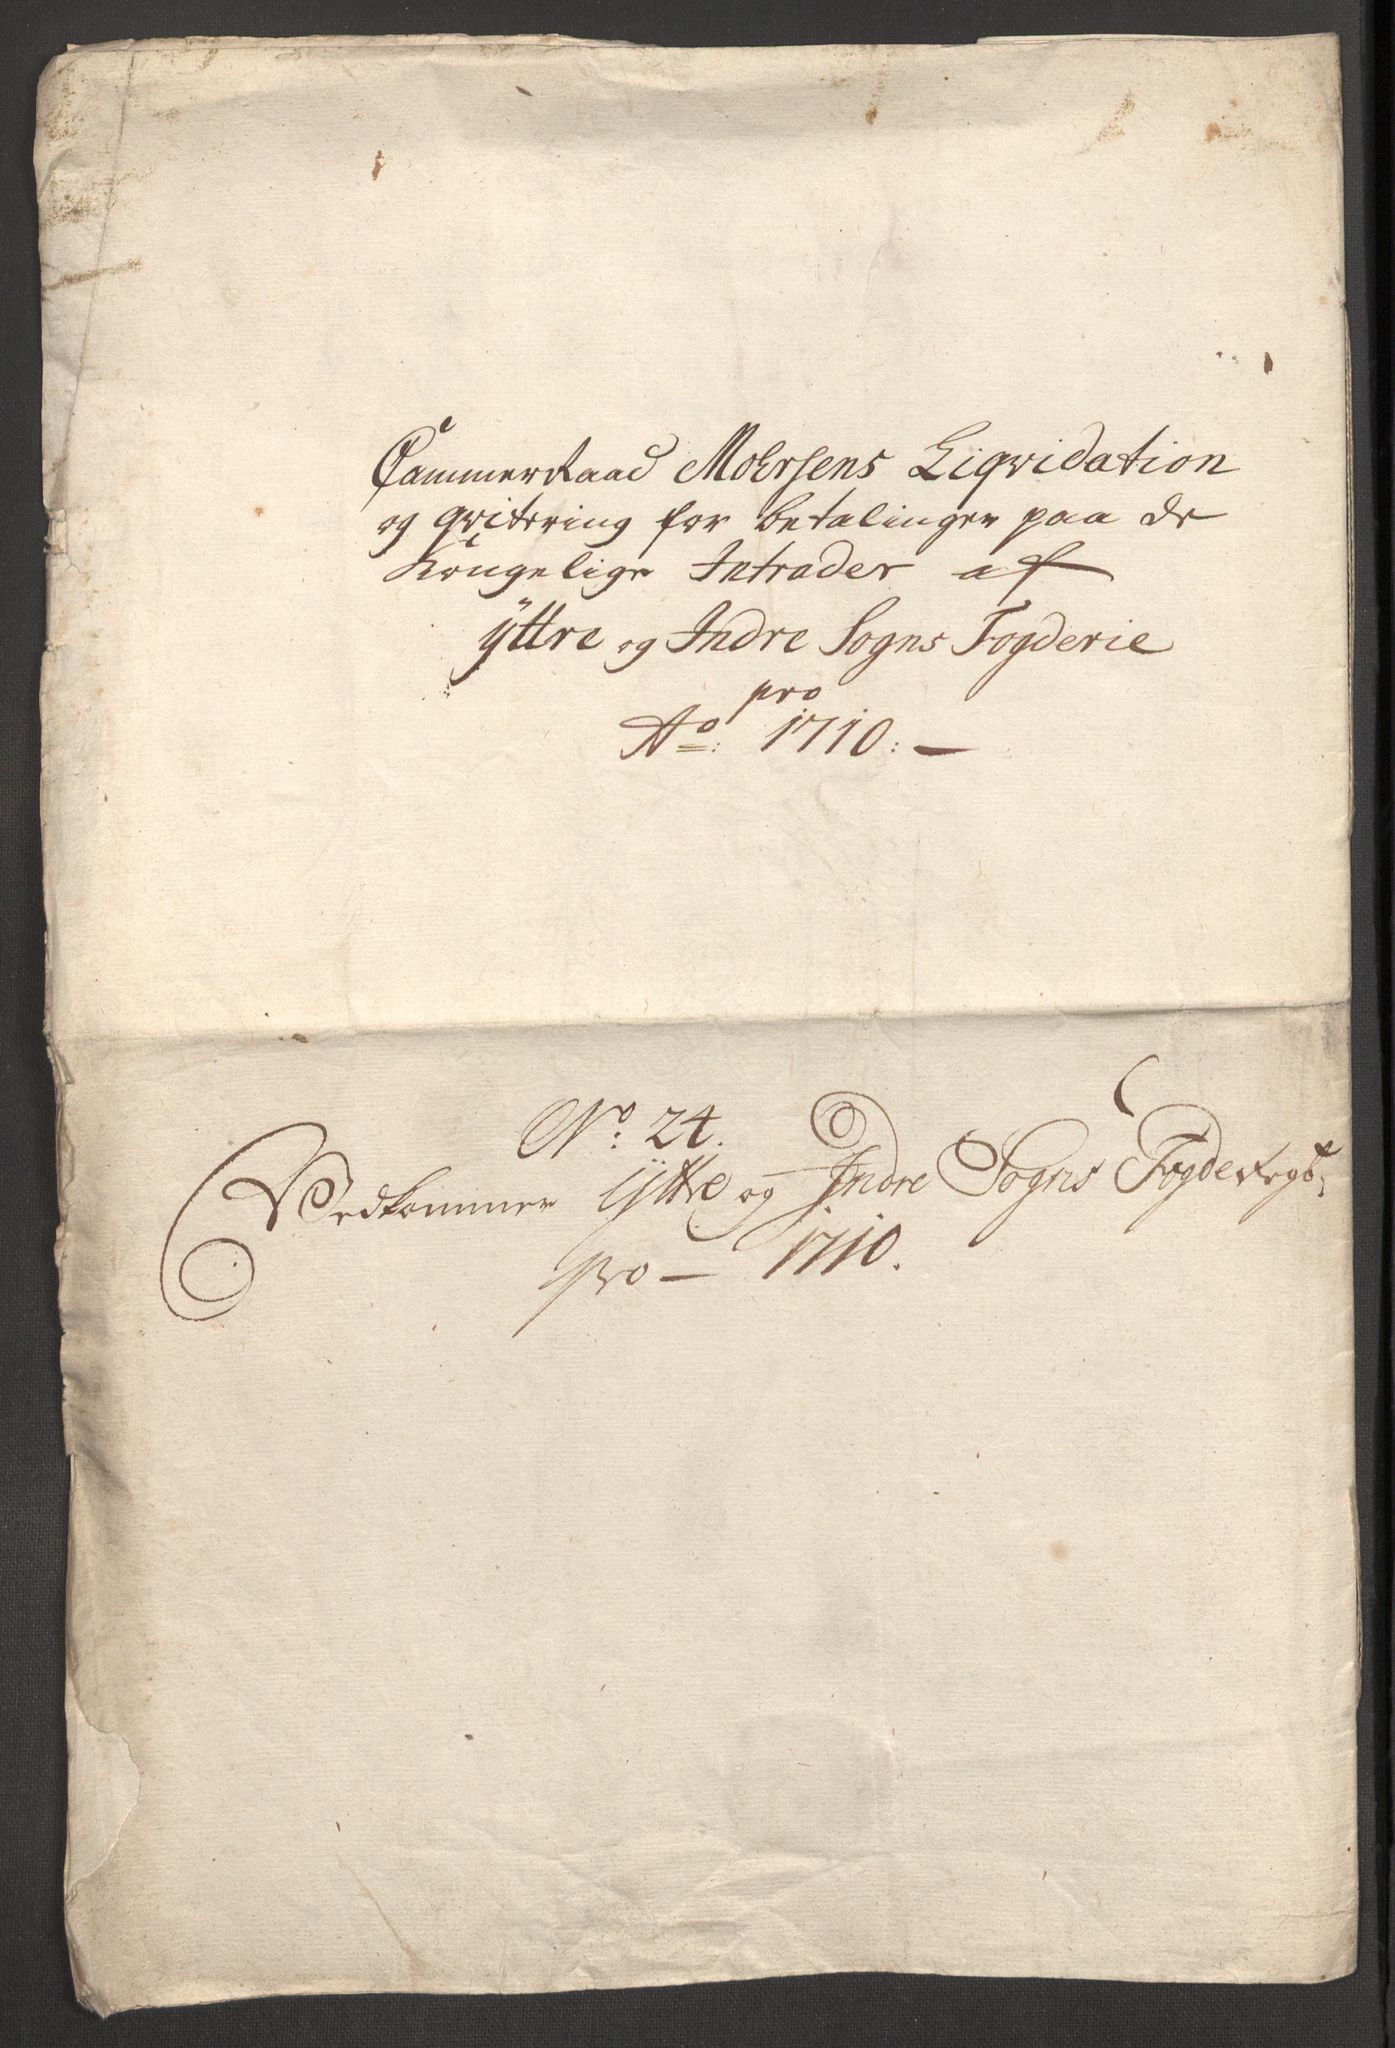 CammerRaad Moersens Liqvidation
og qvitering for betalinger paa de
Kongelige Intrader af
Ÿttre og Indre Sogns Fogderie
pro
Ao: 1710:
No: 24.
Vedkommer Ÿttre og Indre Sogns Fogderegb:
pro 1710.